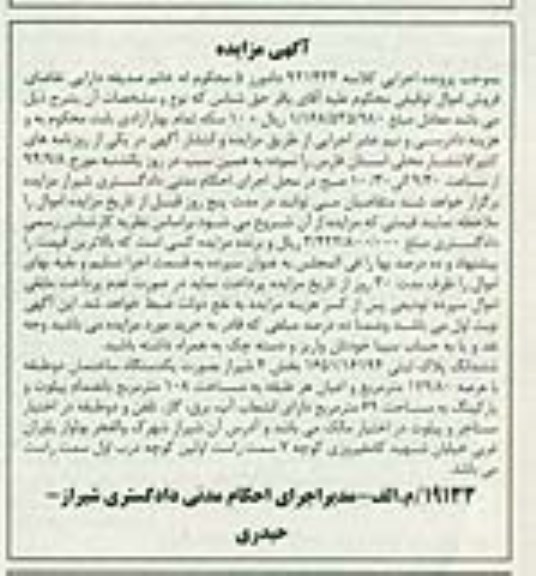 آگهی مزایده
بموجب پرونده اجرایی کلاسه ۹۲۱۴۲۴ مامور ۵ محکوم له خانم صدیقه دارابی تقاضای
فروش اموال توقیفی محکوم علیه آقای باقر حق شناس که نوع و مشخصات آن بشرح ذیل
می باشد معادل مبلغ ریال + ۱۰۰ سکه تمام بهار آزادی بابت محکوم به و
هزینه دادرسی و نیم عشر اجرایی از طریق مزایده و انتشار آگهی در یکی از روزنامه های
کثیرالانتشار محلی استان فارس را نموده به همین سبب در روز یکشنبه مورخ
از ساعت ۹/۳۰ الی ۱۰/۳۰ صبح در محل اجرای احکام مدنی دادگستری شیراز مزایده
برگزار خواهد شد متقاضیان می توانند در مدت پنج روز قبل از تاریخ مزایده اموال را
ملاحظه نمایند قیمتی که مزایده از آن شروع می شود براساس نظریه کارشناس رسمی
دادگستری مبلغ ریال و برنده مزایده کسی است که بالاترین قیمت را
پیشنهاد و ده درصد بها را فی المجلس به عنوان سپرده به قسمت اجرا تسلیم و بقیه بهای
اموال را ظرف مدت ۳۰ روز از تاریخ مزایده پرداخت نماید در صورت عدم پرداخت مابقی
اموال سپرده تودیعی پس از کسر هزینه مزایده به نفع دولت ضبط خواهد شد. این آگهی
نوبت اول می باشد و ضمنا ده درصد مبلغی که قادر به خرید مورد مزایده می باشید وجه
نقد و یا به حساب سیبا خودتان واریز و دسته چک به همراه داشته باشید.
ششدانگ پلاک ثبتی بخش ۴ شیراز بصورت یکدستگاه ساختمان دوطبقه
با عرصه مترمربع و اعیان هر طبقه به مساحت ۱۰۸ مترمربع بانضمام پیلوت و
پارکینگ به مساحت ۳۹ مترمربع دارای انشعاب آب، برق، گاز، تلفن و دوطبقه در اختیار
مستاجر و پیلوت در اختیار مالک می باشد و آدرس آن شیراز شهرک والفجر بلوار
غربی خیابان شهید کوچه ۷ سمت راست اولین کوچه درب اول سمت راست
می باشد.
۱۹۱۳۳/م.الف-مدیر اجرای احکام مدنی دادگستری شیراز-
حیدری